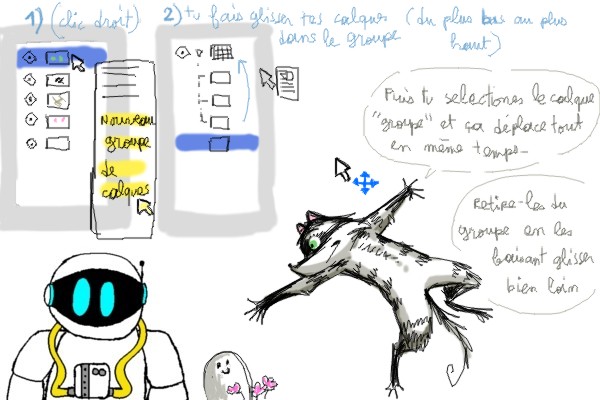 1) (clic droit)
2) tu fais glisser tes calques (du plus bas au plus
dans le groupe haut)
Nouveau
groupe
de
calques
Puis tu sélectionnes le calque
"groupe" et ça déplace tout
en même temps_
Retire-les du
groupe en les
faisant glisser
bien loin